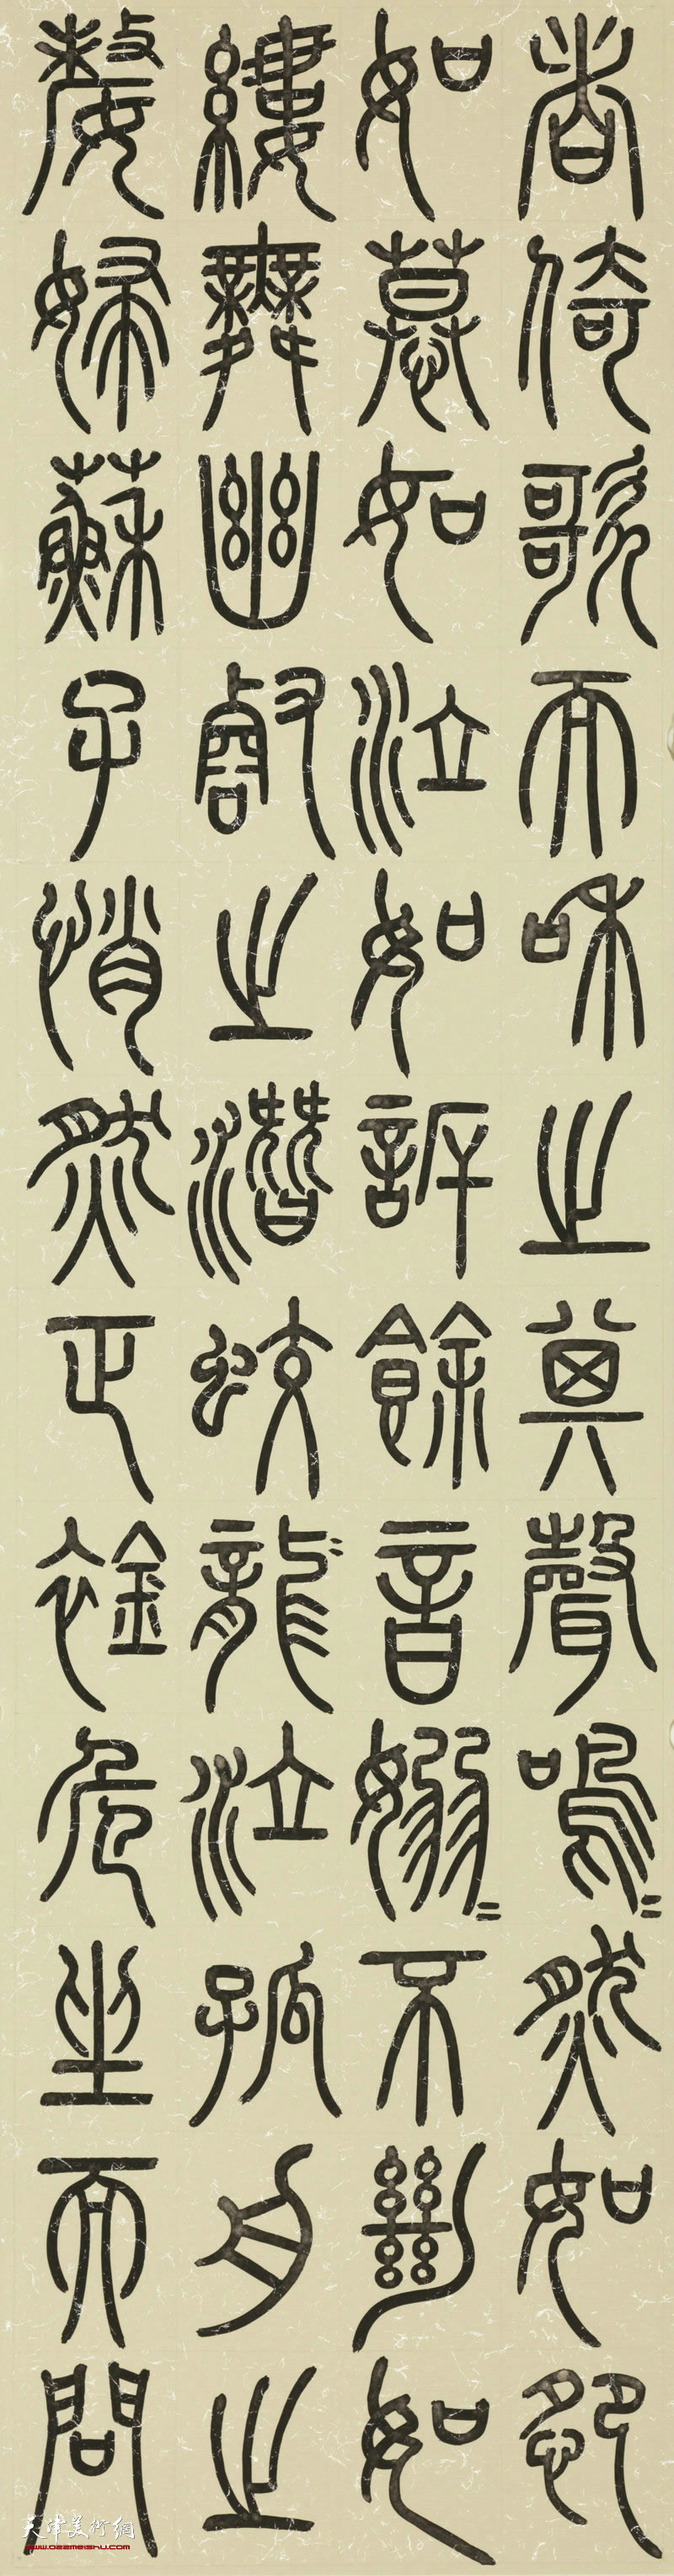 者倚歌而和之其聲嗚〻然如怨
如慕如泣如訴餘音嫋〻不絕如
縷舞幽壑之潛蛟龍泣孤舟之
嫠婦蘇子愀然正襟危坐而問
天津美術網
www.022meishu.com